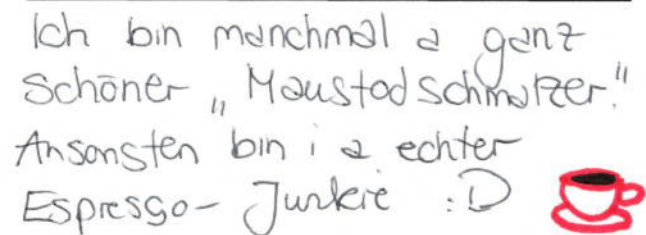 Ich bin manchmal a ganz
schöner „Maustodschmatzer."
Ansonsten bin i a echter
Espresso-Junkie :D